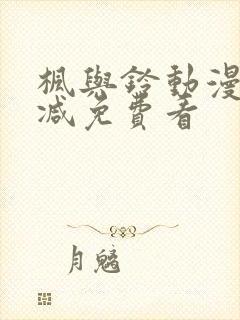 楓與鈴動漫
減免費看
月魑